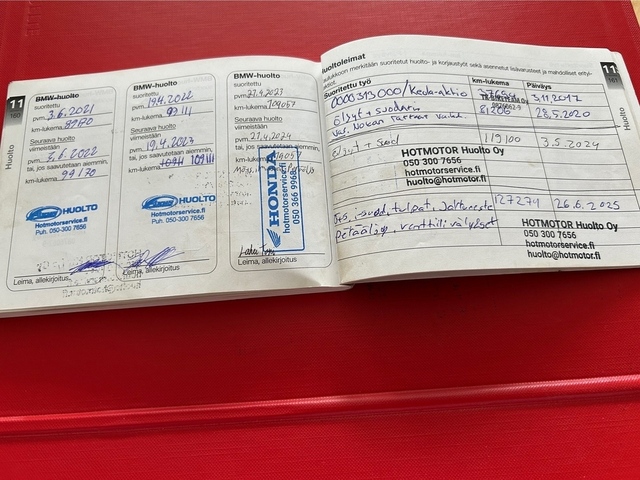 11
160
Huolto
BMW-huolto
suoritettu
pvm. 3.6.2021
km-lukema 89170
Seuraava huolto
viimeistään
pvm. 3.6.2022
tai, jos saavutetaan aiemmin,
km-lukema 99170
HUOLTO
Hotmotorservice.fi
Puh. 050-300 7656
Leima, allekirjoitus
BMW-huolto
suoritettu
pvm. 19.4.2022
km-lukema 99111
Seuraava huolto
viimeistään
pvm. 19.4.2023
tai, jos saavutetaan aiemmin,
km-lukema 109111
HUOLTO
Hotmotorservice.fi
Puh. 050-300 7656
Leima, allekirjoitus
BMW-huolto
suoritettu
pvm. 27.4.2023
km-lukema 109057
Seuraava huolto
viimeistään
pvm. 27.4.2024
tai, jos saavutetaan aiemmin,
HONDA
hotmotorservice.fi
Leima, allekirjoitus
Huoltoleimat
huolto- ja korjaustyöt sekä asennetut lisävarusteet ja mahdolliset
11
Huolto
Suoritettu työ
km-lukema
Päiväys
0000313000/Keula-aktio
3.11.2017
Öljyt + suodatin
81206
28.5.2020
Öljyt + suod
119100
3.5.2024
HOTMOTOR Huolto Oy
050 300 7656
hotmotorservice.fi
huolto@hotmotor.fi
127274
26.6.2025
HOTMOTOR Huolto Oy
050 300 7656
hotmotorservice.fi
huolto@hotmotor.fi